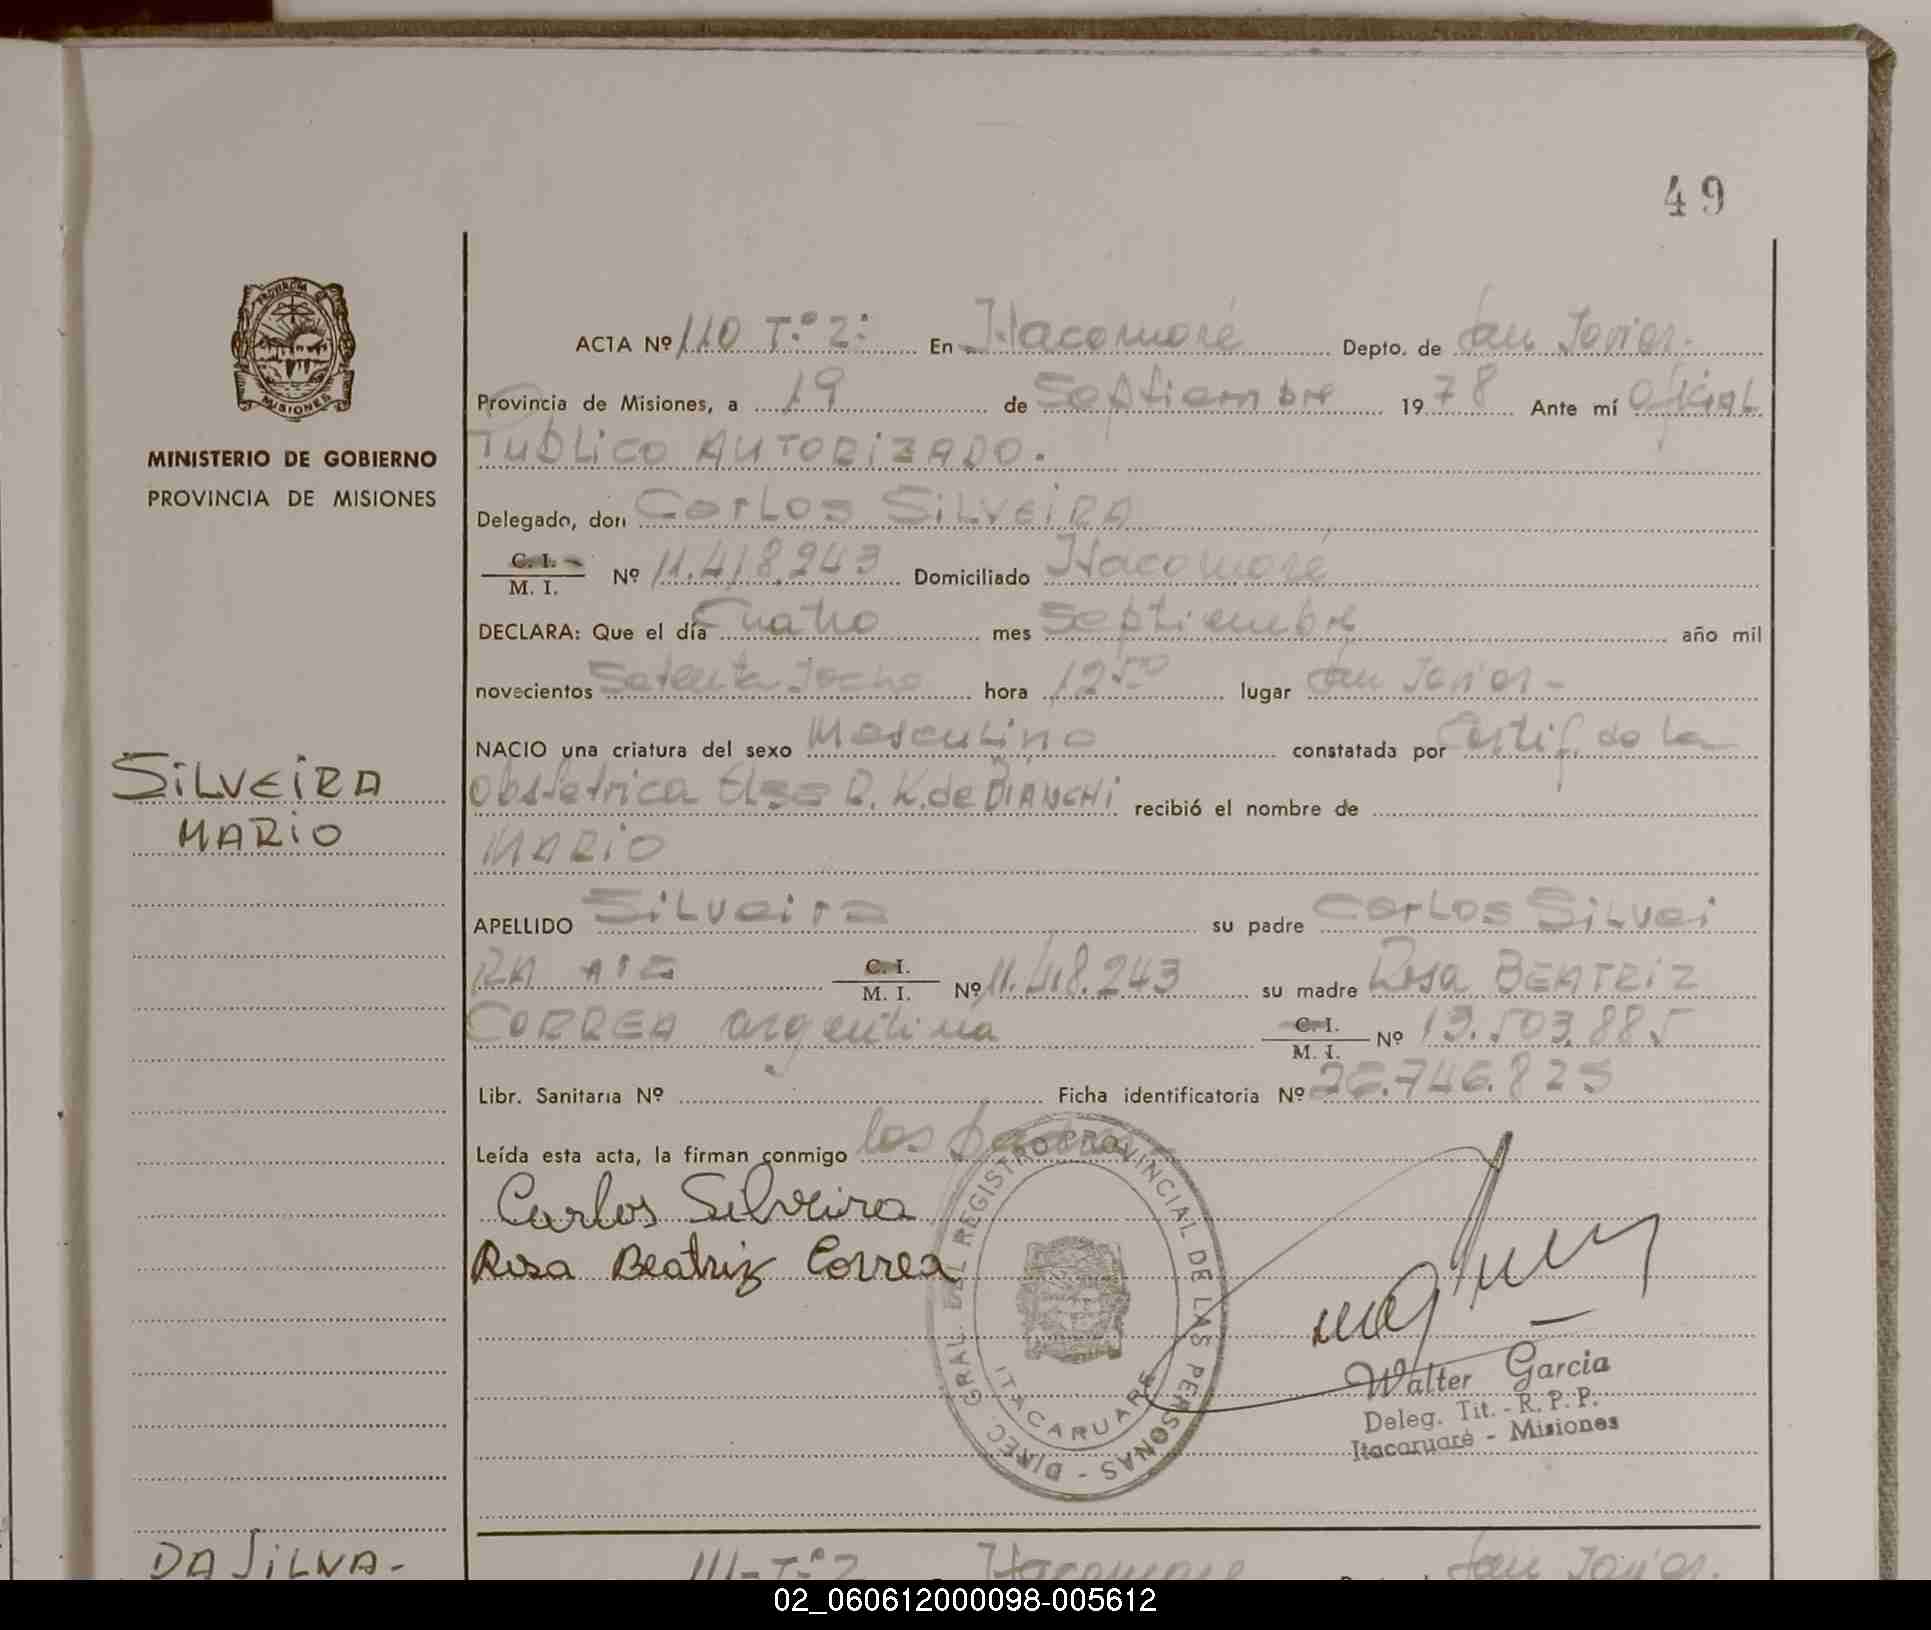 49
PROVINCIA DE
MISIONES
MINISTERIO DE GOBIERNO
PROVINCIA DE MISIONES
SILVEIRA
MARIO
ACTA Nº 110 T.º 2: En Itacaruaré Depto. de San Javier.
Provincia de Misiones, a 19 de Septiembre 1978 Ante mí Oficial
Publico AUTORIZADO.
Delegado, don Carlos SILVEIRA
C. I. M. I. Nº 11.418.243 Domiciliado Itacaruaré
DECLARA: Que el día Cuatro mes Septiembre año mil
novecientos Setenta Iocho hora 12 50 lugar San Javier -
NACIO una criatura del sexo Masculino constatada por Certif. de la
Obstetrica Elsa R. K. de BIANCHI recibió el nombre de
MARIO
APELLIDO Silveira su padre Carlos Silvei
RA ARG C. I. M. I. Nº 11.418.243 su madre Rosa BEATRIZ
CORREA argentina C. I. M. I. Nº 13.503.885
Libr. Sanitaria Nº Ficha identificatoria Nº 26.746.825
Leída esta acta, la firman conmigo los padres
Carlos Silveira
Rosa Beatriz Correa
DIREC. GRAL. DEL REGISTRO PROVINCIAL DE LAS PERSONAS -
ITACARUARE
Walter Garcia
Deleg. Tit. - R. P. P.
Itacaruaré - Misiones
DA SILVA-
111-T.º 2 Itacaruaré San Javier.
02_060612000098-005612